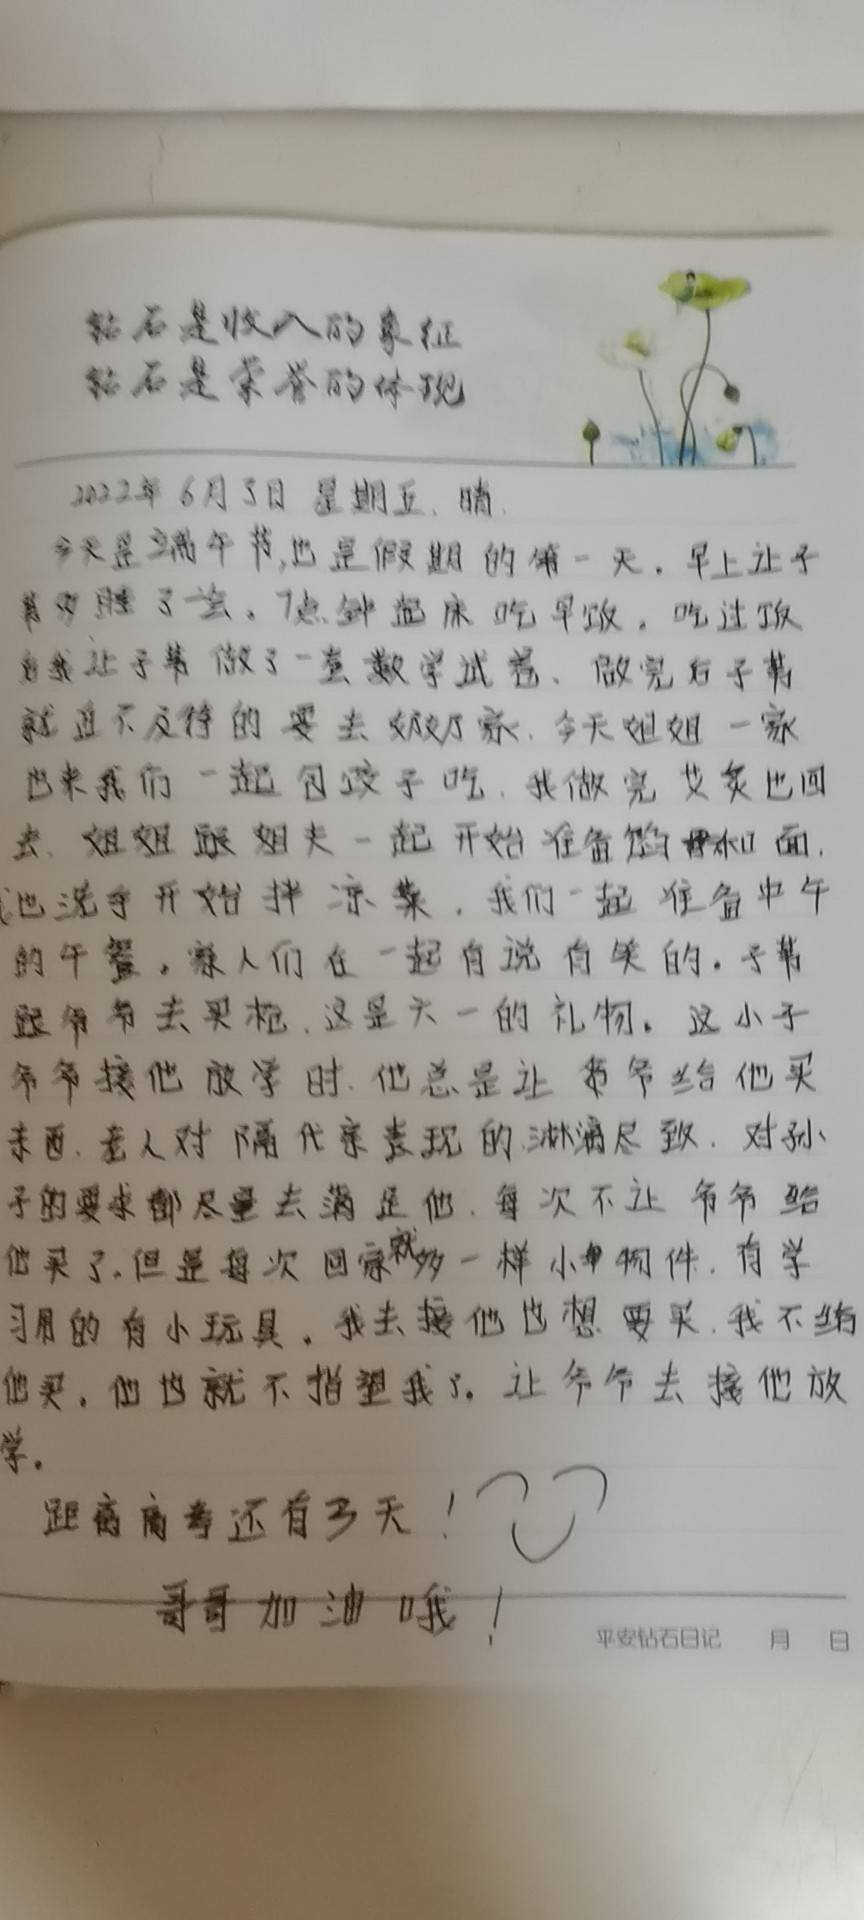 钻石是收入的象征
钻石是荣誉的体现
2022年6月3日 星期五、晴.
今天是端午节,也是假期的第一天。早上让子
多睡了会。7点钟起床吃早饭。吃过饭
我让子 做了一套数学试卷、做完后子
就迫不及待的要去奶奶家、今天姐姐一家
也来我们一起包饺子吃、我做完艾炙也回
去、姐姐跟姐夫一起开始准备馅和面.
我也洗手开始拌凉菜,我们一起准备中午
的午餐。家人们在一起有说有笑的。子
跟爷爷去买枪、这是六一的礼物。这小子
爷爷接他放学时、他总是让爷爷给他买
东西、老人对隔代亲表现的淋漓尽致、对孙
子的要求都尽量去满足他、每次不让爷爷给
他买了、但是每次回家就多一样小物件、有学
习用的有小玩具。我去接他也想要买、我不给
他买。他也就不指望我了。让爷爷去接他放
学。
距离高考还有3天!
哥哥加油哦!
平安钻石日记 月 日